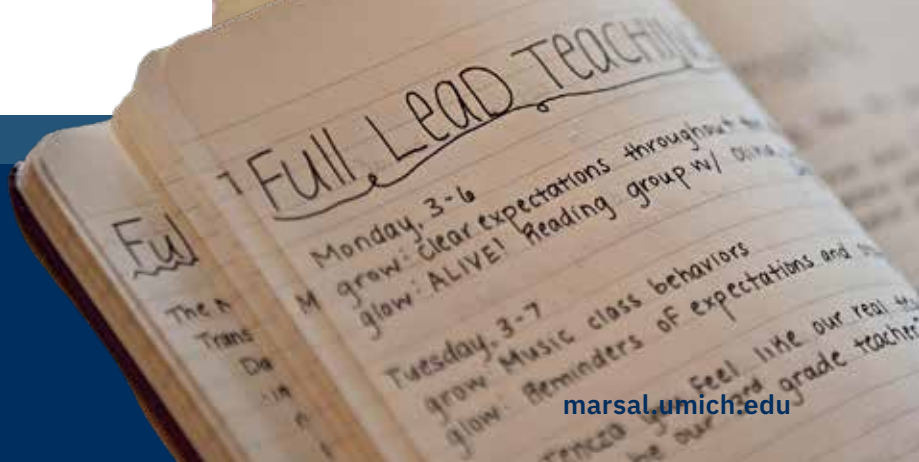 Full Lead Teachin
Monday, 3-6
grow: clear expectations throughout
glow: ALIVE! Reading group w/
Tuesday, 3-7
grow: Music class behaviors
glow: Reminders of expectations and
you feel like our real
be our 3rd grade teacher
marsal.umich.edu
Ful
The
Trans
Da
M